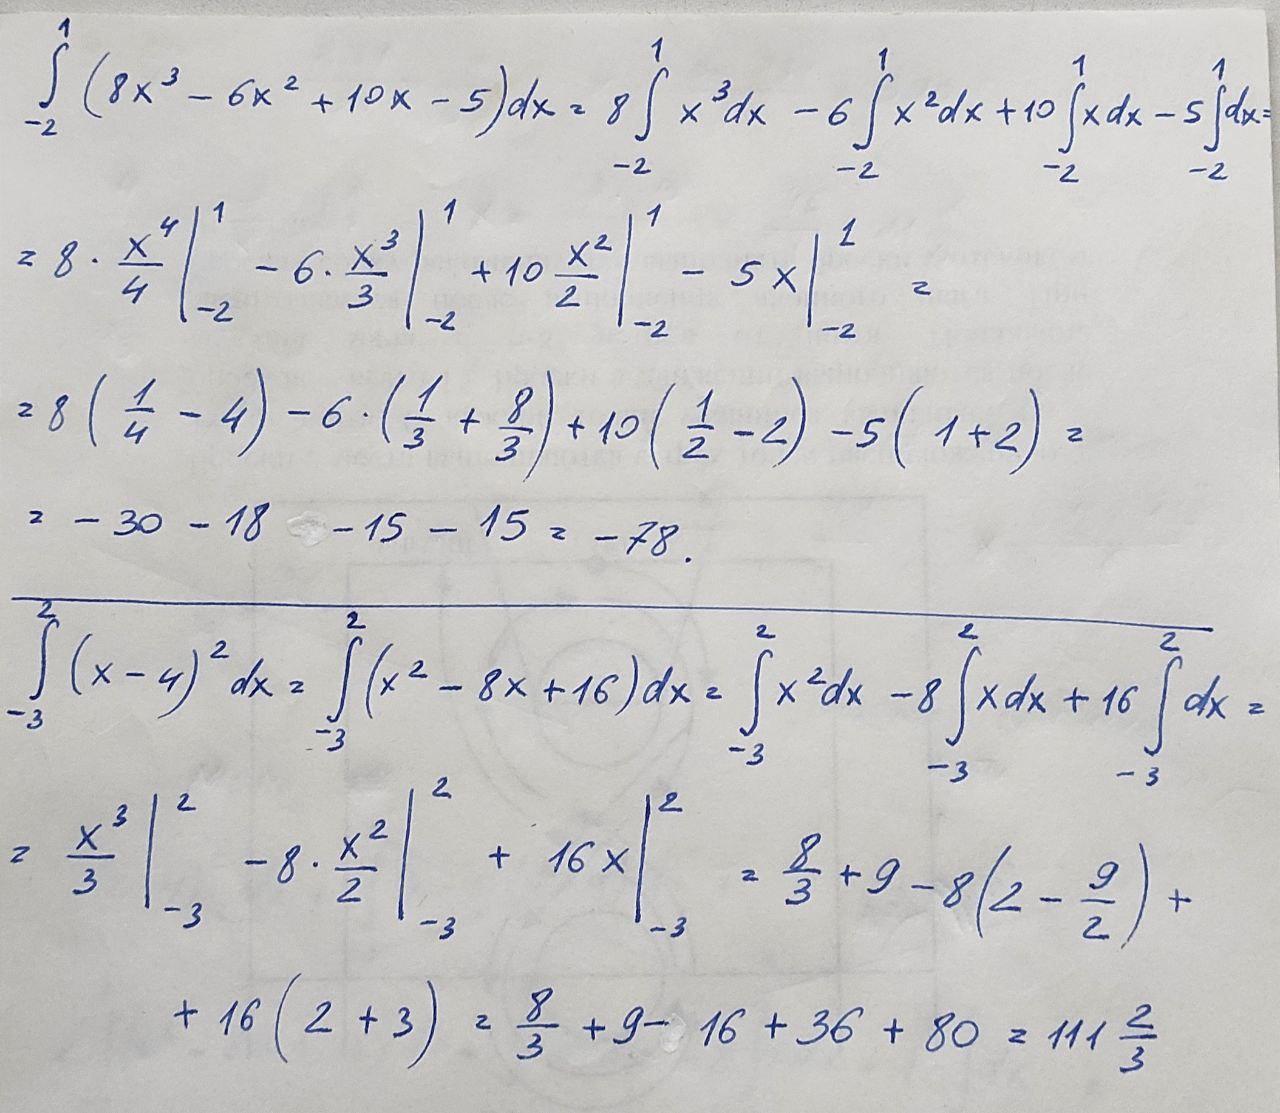 ∫₋₂¹ (8x³ − 6x² + 10x − 5)dx = 8 ∫₋₂¹ x³dx − 6 ∫₋₂¹ x²dx + 10 ∫₋₂¹ xdx − 5 ∫₋₂¹ dx =
= 8 · x⁴/4 |₋₂¹ − 6 · x³/3 |₋₂¹ + 10 x²/2 |₋₂¹ − 5x |₋₂¹ =
= 8 (1/4 − 4) − 6 · (1/3 + 8/3) + 10 (1/2 − 2) − 5 (1 + 2) =
= − 30 − 18 − 15 − 15 = − 78.
∫₋₃² (x − 4)² dx = ∫₋₃² (x² − 8x + 16) dx = ∫₋₃² x²dx − 8 ∫₋₃² xdx + 16 ∫₋₃² dx =
= x³/3 |₋₃² − 8 · x²/2 |₋₃² + 16x |₋₃² = 8/3 + 9 − 8 (2 − 9/2) +
+ 16 (2 + 3) = 8/3 + 9 − 16 + 36 + 80 = 111 2/3